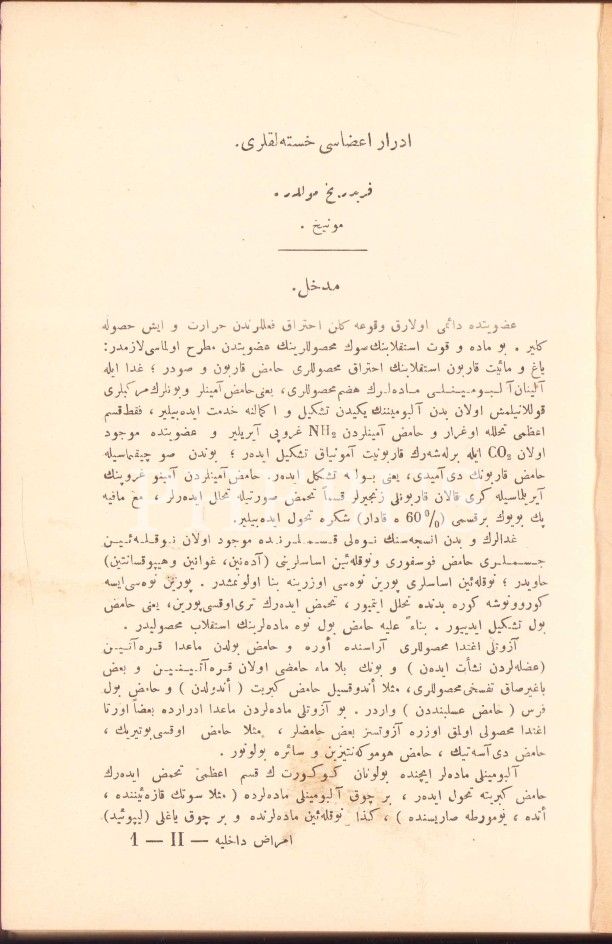 ادرار اعضاسی خسته‌لقلری.
فریدریخ موللردن
مونیخ .
مدخل.
عضویتده دائمی اولارق وقوعه کلن احتراق فعللرندن حرارت و ایش حصوله
کلیر . بو ماده و قوت استقلابنك صوك محصوللرینك عضویتدن مطرح اولماسی لازمدر:
یاغ و مائیت قاربون استقلابنك احتراق محصوللری حامض قاربون و صودر ؛ غدا ایله
آلینان آلبومینلی ماده‌لرك هضم محصوللری، یعنی حامض آمینلر و بونلرك مرکبلری
قوللانیلمش اولان بدن آلبومیننك یکیدن تشکیل و اکمالنه خدمت ایده‌بیلیر ، فقط قسم
اعظمی تحلله اوغرار و حامض آمینلردن NH₂ غروپی آیریلیر و عضویتده موجود
اولان CO₂ ایله برله‌شه‌رك قاربونیت آمونیاق تشکیل ایدەر ؛ بوندن صو چیقماسیله
حامض قاربونك دی‌آمیدی، یعنی بوله تشکل ایدەر. حامض آمینلردن آمینو غروپنك
آیریلماسیله کری قالان قاربونلی زنجیرلر قسماً تحمض صورتیله تحلل ایدەرلر ، مع مافیه
پك بویوك برقسمی (60 % ه قادار) شکره تحول ایده‌بیلیر.
غدالرك و بدن انسجه‌سنك نوه‌لی قسملرنده موجود اولان نوقله‌ئین
جسملری حامض فوسفوری و نوقله‌ئین اساسلرینی (آده‌نین، غوانین وهیپوقسانتین)
حاویدر ؛ نوقله‌ئین اساسلری پورین نوه‌سی اوزرینه بنا اولونمشدر . پورین نوه‌سی ایسه
کورونوشه کوره بدنده تحلل ایتمیور ، تحمض ایدەرك تری‌اوقسی‌پورین، یعنی حامض
بول تشکیل ایدییور . بناءً علیه حامض بول نوه ماده‌لرینك استقلاب محصولیدر .
آزوتلی اغتدا محصوللری آراسنده اوره و حامض بولدن ماعدا قره‌آتین
(عضله‌لردن نشأت ایدەن ) و بونك بلا ماء حامضی اولان قره‌آتینین و بعض
باغیرصاق تفسخی محصوللری، مثلا أندوقسیل حامض کبریت ( أندولدن ) و حامض بول
فرس ( حامض عسلبنددن ) واردر . بو آزوتلی ماده‌لردن ماعدا ادرارده بعضاً اورتا
اغتدا محصولی اولمق اوزره آزوتسز بعض حامضلر ، مثلا حامض اوقسی‌بوتیریك ،
حامض دی‌آسه‌تیك ، حامض هوموکه‌نتیزین و سائره بولونور .
آلبومینلی ماده‌لر ایچنده بولونان کوکورت‌ك قسم اعظمی تحمض ایدەرك
حامض کبریته تحول ایدەر ، بر چوق آلبومینلی ماده‌لرده ( مثلا سوتك قازه‌ئیننده ،
أتده ، یومورطه صاریسنده ) ، کذا نوقله‌ئین ماده‌لرنده و بر چوق یاغلی (لیپوئید)
امراض داخلیه — II — 1